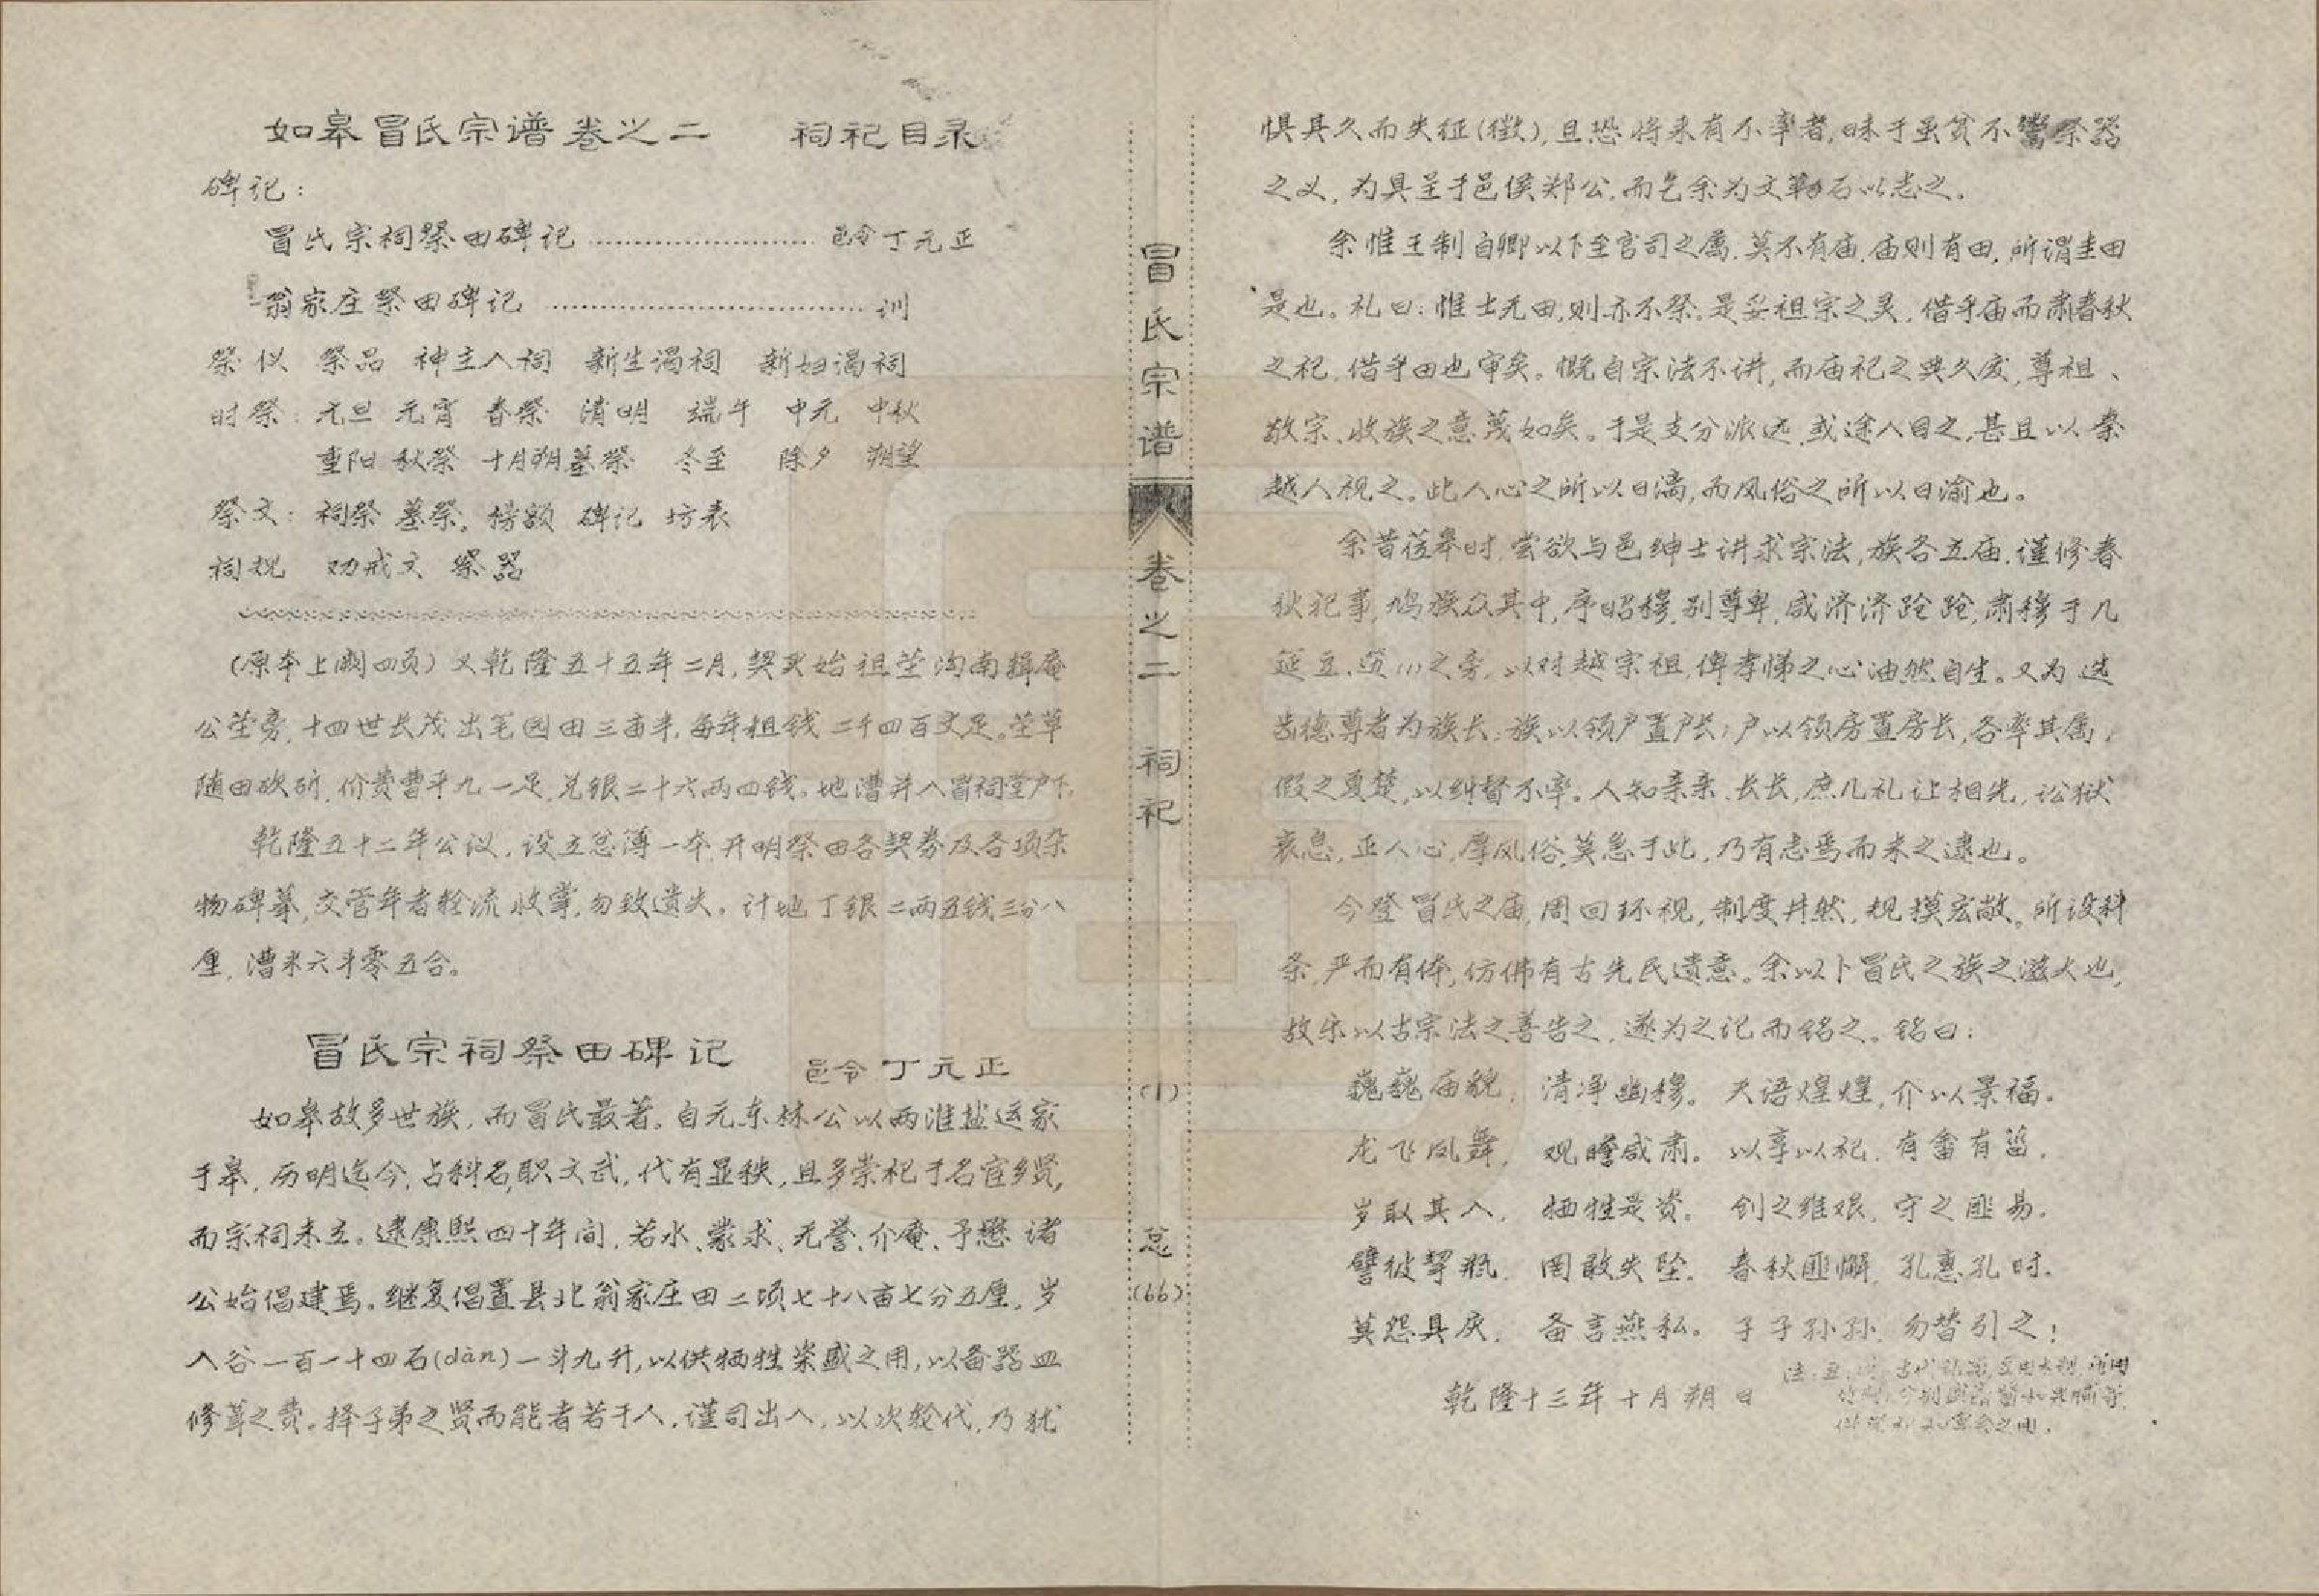 如皋冒氏宗谱卷之二 祠祀目录
碑记：
冒氏宗祠祭田碑记 …………………… 邑令丁元正
翁家庄祭田碑记 …………………………… 训
祭仪 祭品 神主入祠 新生谒祠 新妇谒祠
时祭：元旦 元宵 春祭 清明 端午 中元 中秋
重阳 秋祭 十月朔墓祭 冬至 除夕 朔望
祭文：祠祭 墓祭。榜额 碑记 坊表
祠规 劝戒文 祭器
（原本上阙四页）又乾隆五十五年二月，契买始祖茔沟南辑庵
公茔旁，十四世长茂出笔园田三亩半，每年租钱二千四百文足。茔草
随田砍斫，价费曹平九一足，兑银二十六两四钱。地漕并入冒祠堂户下。
乾隆五十二年公议，设立总簿一本，开明祭田各契券及各项杂
物碑摹，交管年者轮流收掌，勿致遗失。计地丁银二两五钱三分八
厘，漕米六斗零五合。
冒氏宗祠祭田碑记 邑令丁元正
如皋故多世族，而冒氏最著。自元东林公以两淮盐运家
于皋，历明迄今，占科名，职文武，代有显秩，且多崇祀于名宦乡贤，
而宗祠未立。逮康熙四十年间，若水、蒙求、无誉、介庵、予懋诸
公始倡建焉。继复倡置县北翁家庄田二顷七十八亩七分五厘，岁
入谷一百一十四石(dàn)一斗九升，以供牺牲粢盛之用，以备器皿
修葺之费。择子弟之贤而能者若干人，谨司出入，以次轮代，乃犹
冒氏宗谱 卷之二 祠祀 (1) 总(66)
惧其久而失征（徵），且恐将来有不率者，昧于虽贫不鬻祭器
之义，为具呈于邑侯郑公，而乞余为文勒石以志之。
余惟王制自卿以下至官司之属，莫不有庙，庙则有田，所谓圭田
是也。礼曰：惟士无田，则亦不祭。是妥祖宗之灵，借乎庙而肃春秋
之祀，借乎田也审矣。慨自宗法不讲，而庙祀之典久废，尊祖、
敬宗、收族之意蔑如矣。于是支分派远，或途人目之，甚且以秦
越人视之。此人心之所以日漓，而风俗之所以日渝也。
余昔莅皋时，尝欲与邑绅士讲求宗法，族各立庙，谨修春
秋祀事，鸠族众其中，序昭穆，别尊卑，咸济济跄跄，肃穆于几
筵豆、笾之旁，以对越宗祖，俾孝悌之心油然自生。又为选
齿德尊者为族长；族以领户置户长；户以领房置房长，各率其属，
假之夏楚，以纠督不率。人知亲亲、长长，庶几礼让相先，讼狱
衰息，正人心，厚风俗，莫急于此，乃有志焉而未之逮也。
今登冒氏之庙，周回环视，制度井然，规模宏敞。所设科
条，严而有体，仿佛有古先民遗意。余以卜冒氏之族之滋大也，
故乐以古宗法之善告之，遂为之记而铭之。铭曰：
巍巍庙貌，清净幽穆。天语煌煌，介以景福。
龙飞凤舞，观瞻咸肃。以享以祀，有畬有菑。
岁取其入，牺牲是资。创之维艰，守之匪易。
譬彼挈瓶，罔敢失坠。春秋匪懈，孔惠孔时。
莫怨具庆，备言燕私。子子孙孙，勿替引之！
乾隆十三年十月朔日